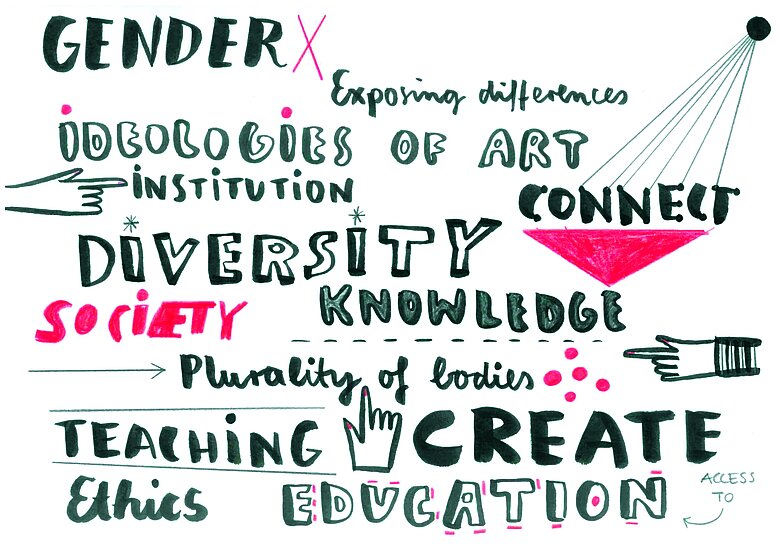 GENDER X
Exposing differences
iDEOLOGiES OF ART
iNSTiTUTiON
CONNECT
DiVERSiTY
SOCiETY
KNOWLEDGE
Plurality of bodies
TEACHiNG
CREATE
Ethics
EDUCATION
ACCESS
TO